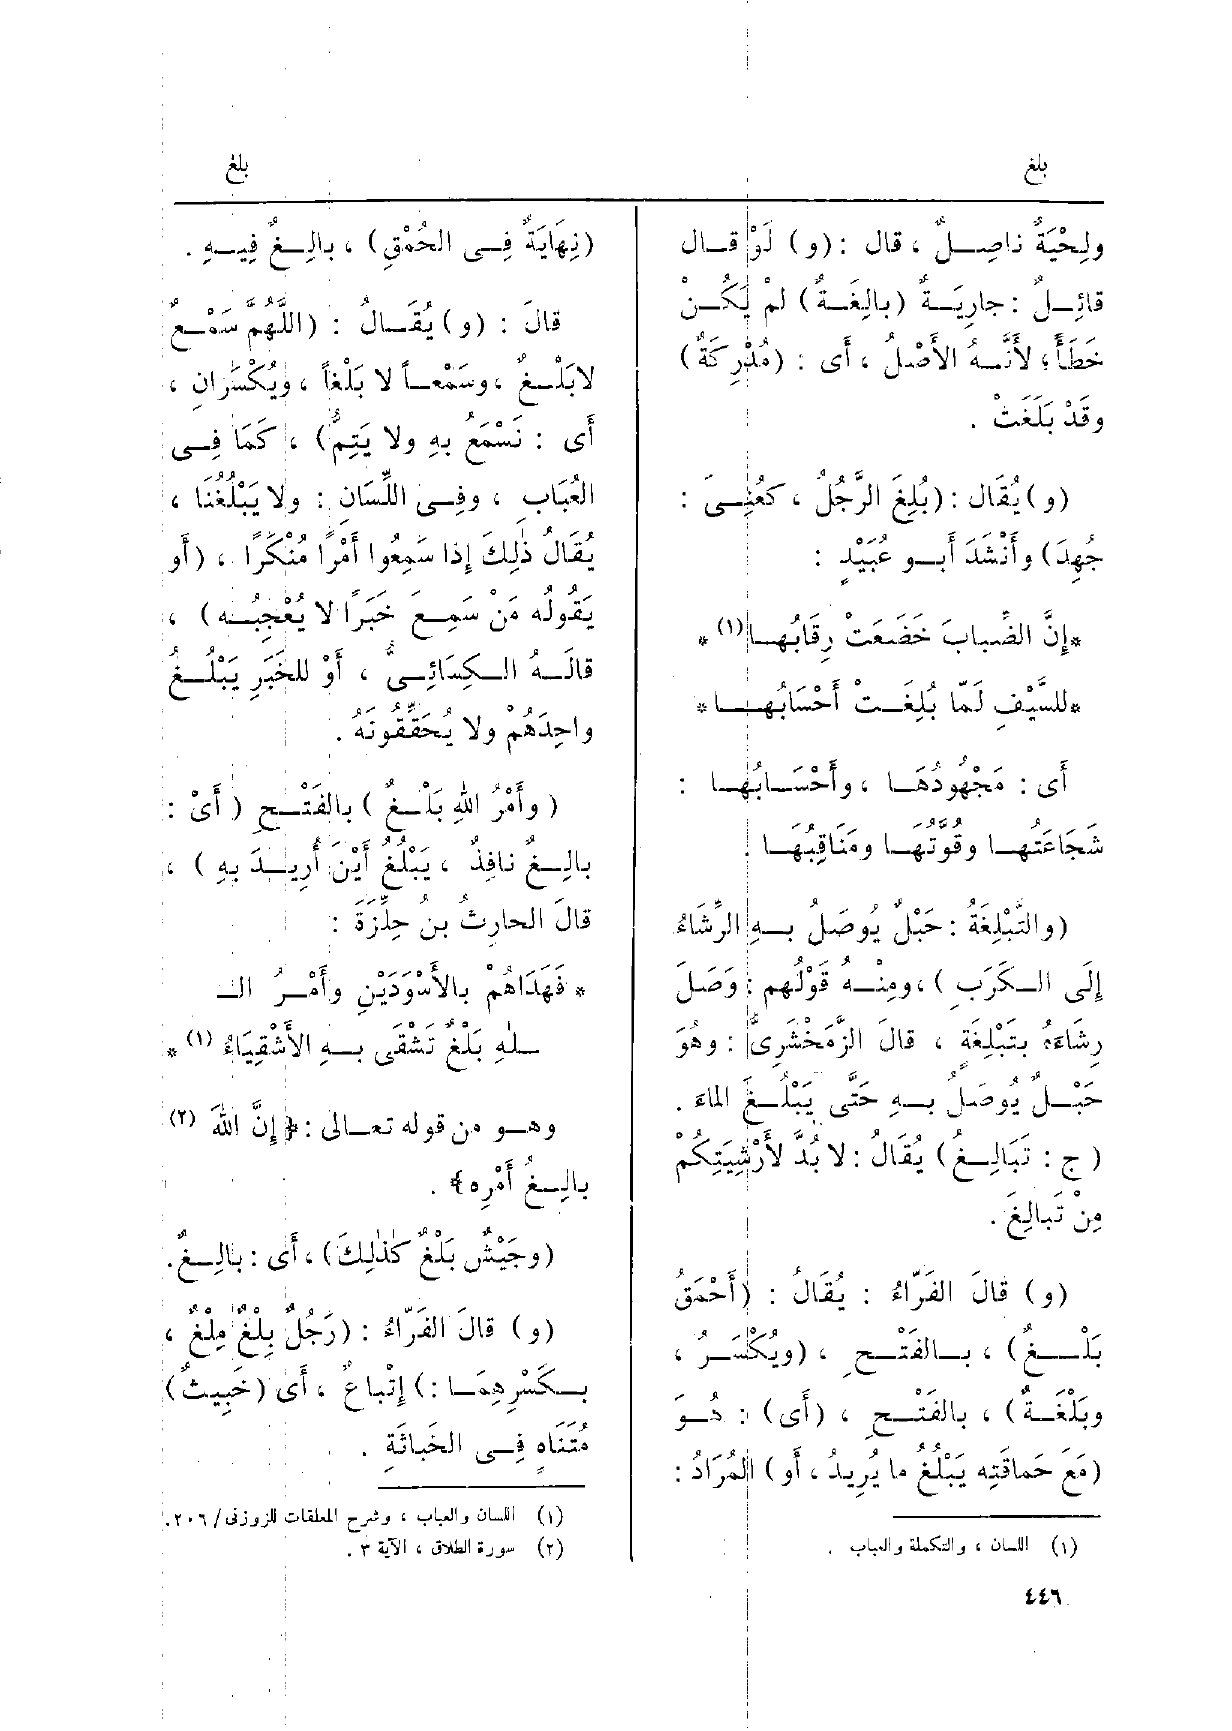 بلغ
بلغ
ولِحْيَةٌ ناصِلٌ ، قال : (و) لَوْ قال
قائِلٌ : جارِيَةٌ (بالِغَةٌ) لمْ يَكُنْ
خَطَأً ؛ لأَنَّهُ الأَصْلُ ، أى : (مُدْرِكَةٌ)
وقَدْ بَلَغَتْ .
(و) يُقال : (بُلِغَ الرَّجُلُ ، كعُنِىَ :
جُهِدَ) وأَنْشَدَ أَبو عُبَيْدٍ :
*إِنَّ الضِّبابَ خَضَعَتْ رِقَابُها(١) *
*للسَّيْفِ لَمَّا بُلِغَتْ أَحْسَابُها*
أَى : مَجْهُودُهَا ، وأَحْسَابُها :
شَجَاعَتُها وقُوَّتُها ومَنَاقِبُهَا .
(والتَّبْلِغَةُ : حَبْلٌ يُوصَلُ بِهِ الرِّشَاءُ
إِلَى الكَرَبِ ) ، ومِنْهُ قَوْلُهم : وَصَلَ
رِشَاءَهُ بتَبْلِغَةٍ ، قالَ الزَّمَخْشَرِىُّ : وهُوَ
حَبْلٌ يُوصَلُ بِهِ حَتَّى يَبْلُغَ الماءَ .
( ج : تَبَالِغُ ) يُقَالُ : لا بُدَّ لأَرْشِيَتِكُمْ
مِنْ تَبالِغَ .
(و) قالَ الفَرّاءُ : يُقَالُ : (أَحْمَقُ
بَلْغٌ) ، بالفَتْحِ ، (ويُكْسَرُ ،
وبَلْغَةٌ) ، بالفَتْحِ ، (أَى) : هُوَ
(مَعَ حَماقَتِه يَبْلُغُ ما يُرِيدُ ، أَو) المُرَادُ :
(١) اللسان ، والتكملة والعباب .
(نِهَايَةٌ فِى الحُمْقِ) ، بالِغٌ فِيهِ .
قالَ : (و) يُقَالُ : (اللَّهُمَّ سَمْعٌ
لابَلْغٌ ، وسَمْعاً لا بَلْغاً ، ويُكْسَرانِ ،
أَى : نَسْمَعُ بِهِ ولا يَتِمُّ) ، كَمَا فِى
العُبَابِ ، وفِى اللِّسَانِ : ولا يَبْلُغُنَا ،
يُقَالُ ذٰلِكَ إِذا سَمِعُوا أَمْرًا مُنْكَرًا ، (أَو
يَقُولُه مَنْ سَمِعَ خَبَرًا لا يُعْجِبُه) ،
قالَهُ الكِسَائِىُّ ، أَوْ للخَبَرِ يَبْلُغُ
واحِدَهُم ولا يُحَقِّقُونَهُ .
( وأَمْرُ اللهِ بَلْغٌ ) بالفَتْحِ ( أَىْ :
بالِغٌ نافِذٌ ، يَبْلُغُ أَيْنَ أُرِيدَ بِهِ ) ،
قالَ الحارِثُ بنُ حِلِّزَةَ :
* فَهَدَاهُمْ بالأَسْوَدَيْنِ وأَمْرُ الـ
ـلٰهِ بَلْغٌ تَشْقَى بِهِ الأَشْقِيَاءُ (١) *
وهو من قوله تعالى : ﴿ إِنَّ اللهَ (٢)
بالِغُ أَمْرِه﴾ .
(وجَيْشٌ بَلْغٌ كذٰلِكَ) ، أَى : بالِغٌ.
(و) قالَ الفَرّاءُ : (رَجُلٌ بِلْغٌ مِلْغٌ ،
بكَسْرِهِمَا :) إِتْباعٌ ، أَى (خَبِيثٌ)
مُتَنَاهٍ فِى الخَبَاثَةِ .
(١) اللسان والعباب ، وشرح المعلقات للزوزنى / ٢٠٦.
(٢) سورة الطلاق ، الآية ٣ .
٤٤٦